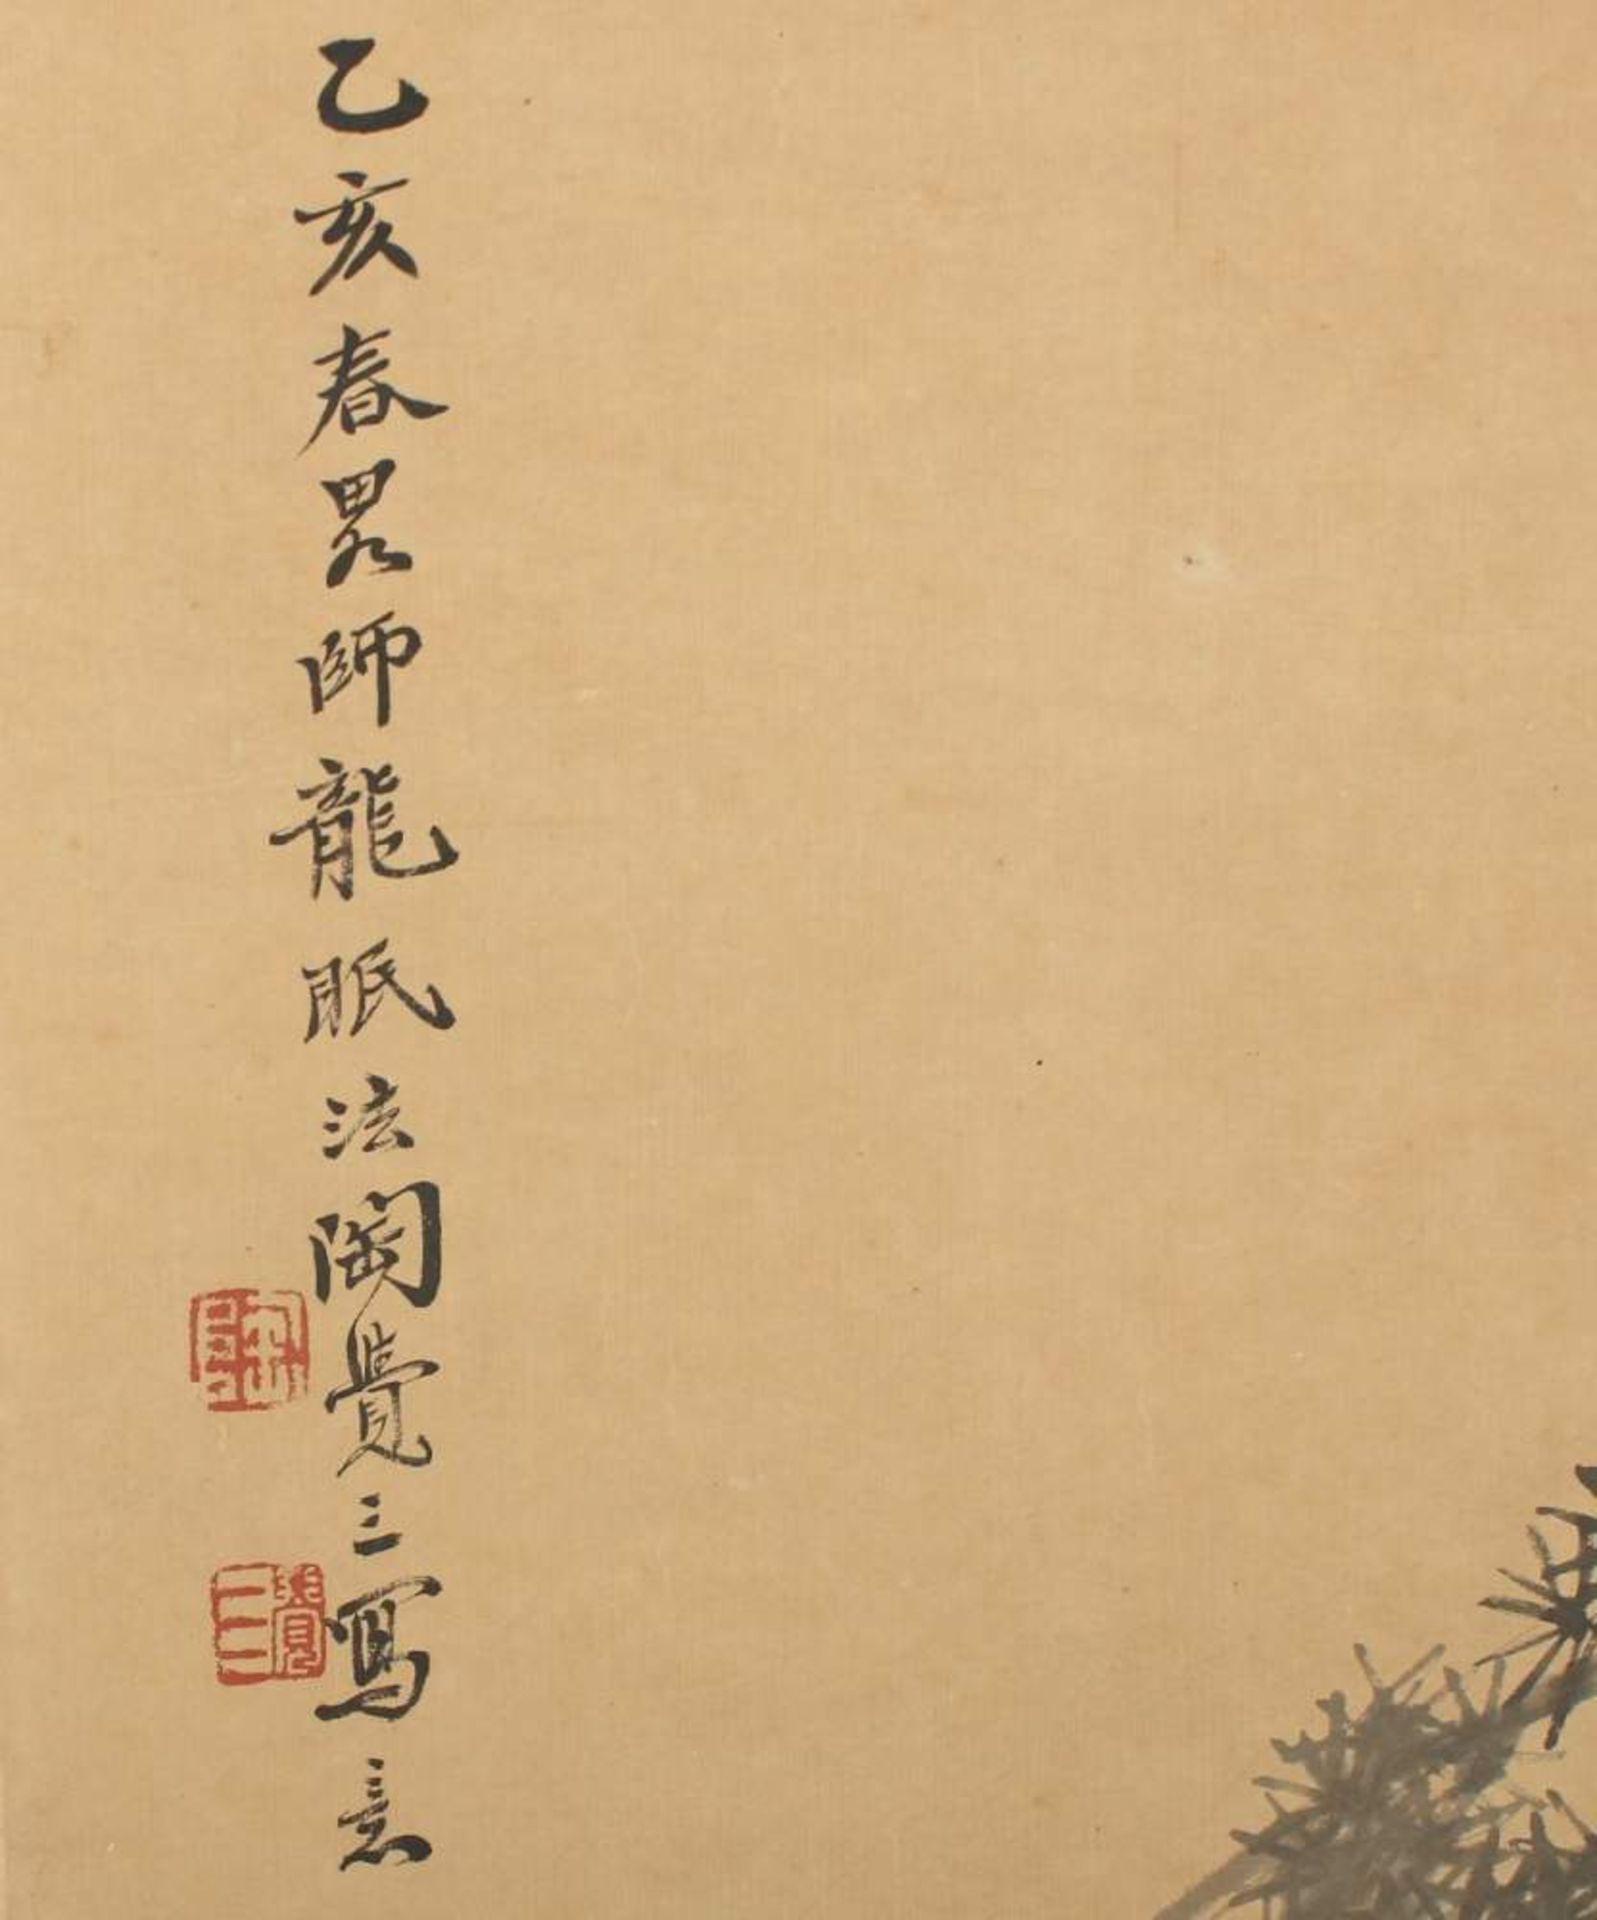 乙亥春畧師龍眠法陶覺三寫意
覺三